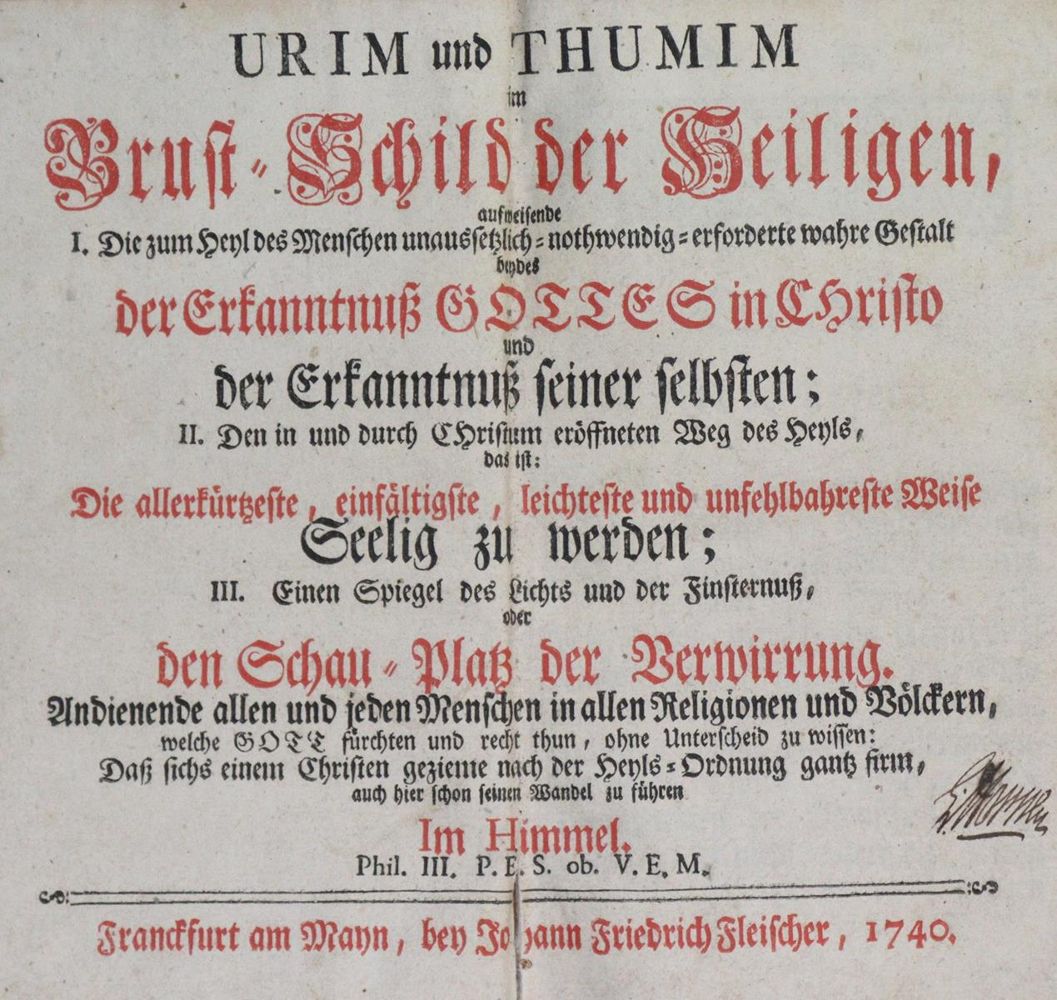 URIM und THUMIM
im
Brust-Schild der Heiligen,
aufweisende
I. Die zum Heyl des Menschen unaussetzlich-nothwendig-erforderte wahre Gestalt
beydes
der Erkanntnuß GOTTES in CHristo
und
der Erkanntnuß seiner selbsten;
II. Den in und durch CHristum eröffneten Weg des Heyls,
das ist:
Die allerkürtzeste, einfältigste, leichteste und unfehlbahreste Weise
Seelig zu werden;
III. Einen Spiegel des Lichts und der Finsternuß,
oder
den Schau-Platz der Verwirrung.
Andienende allen und jeden Menschen in allen Religionen und Völckern,
welche GOTT fürchten und recht thun, ohne Unterscheid zu wissen:
Daß sichs einem Christen gezieme nach der Heyls-Ordnung gantz firm,
auch hier schon seinen Wandel zu führen
Im Himmel.
Phil. III. P. E. S. ob. V. E. M.
Franckfurt am Mayn, bey Johann Friedrich Fleischer, 1740.